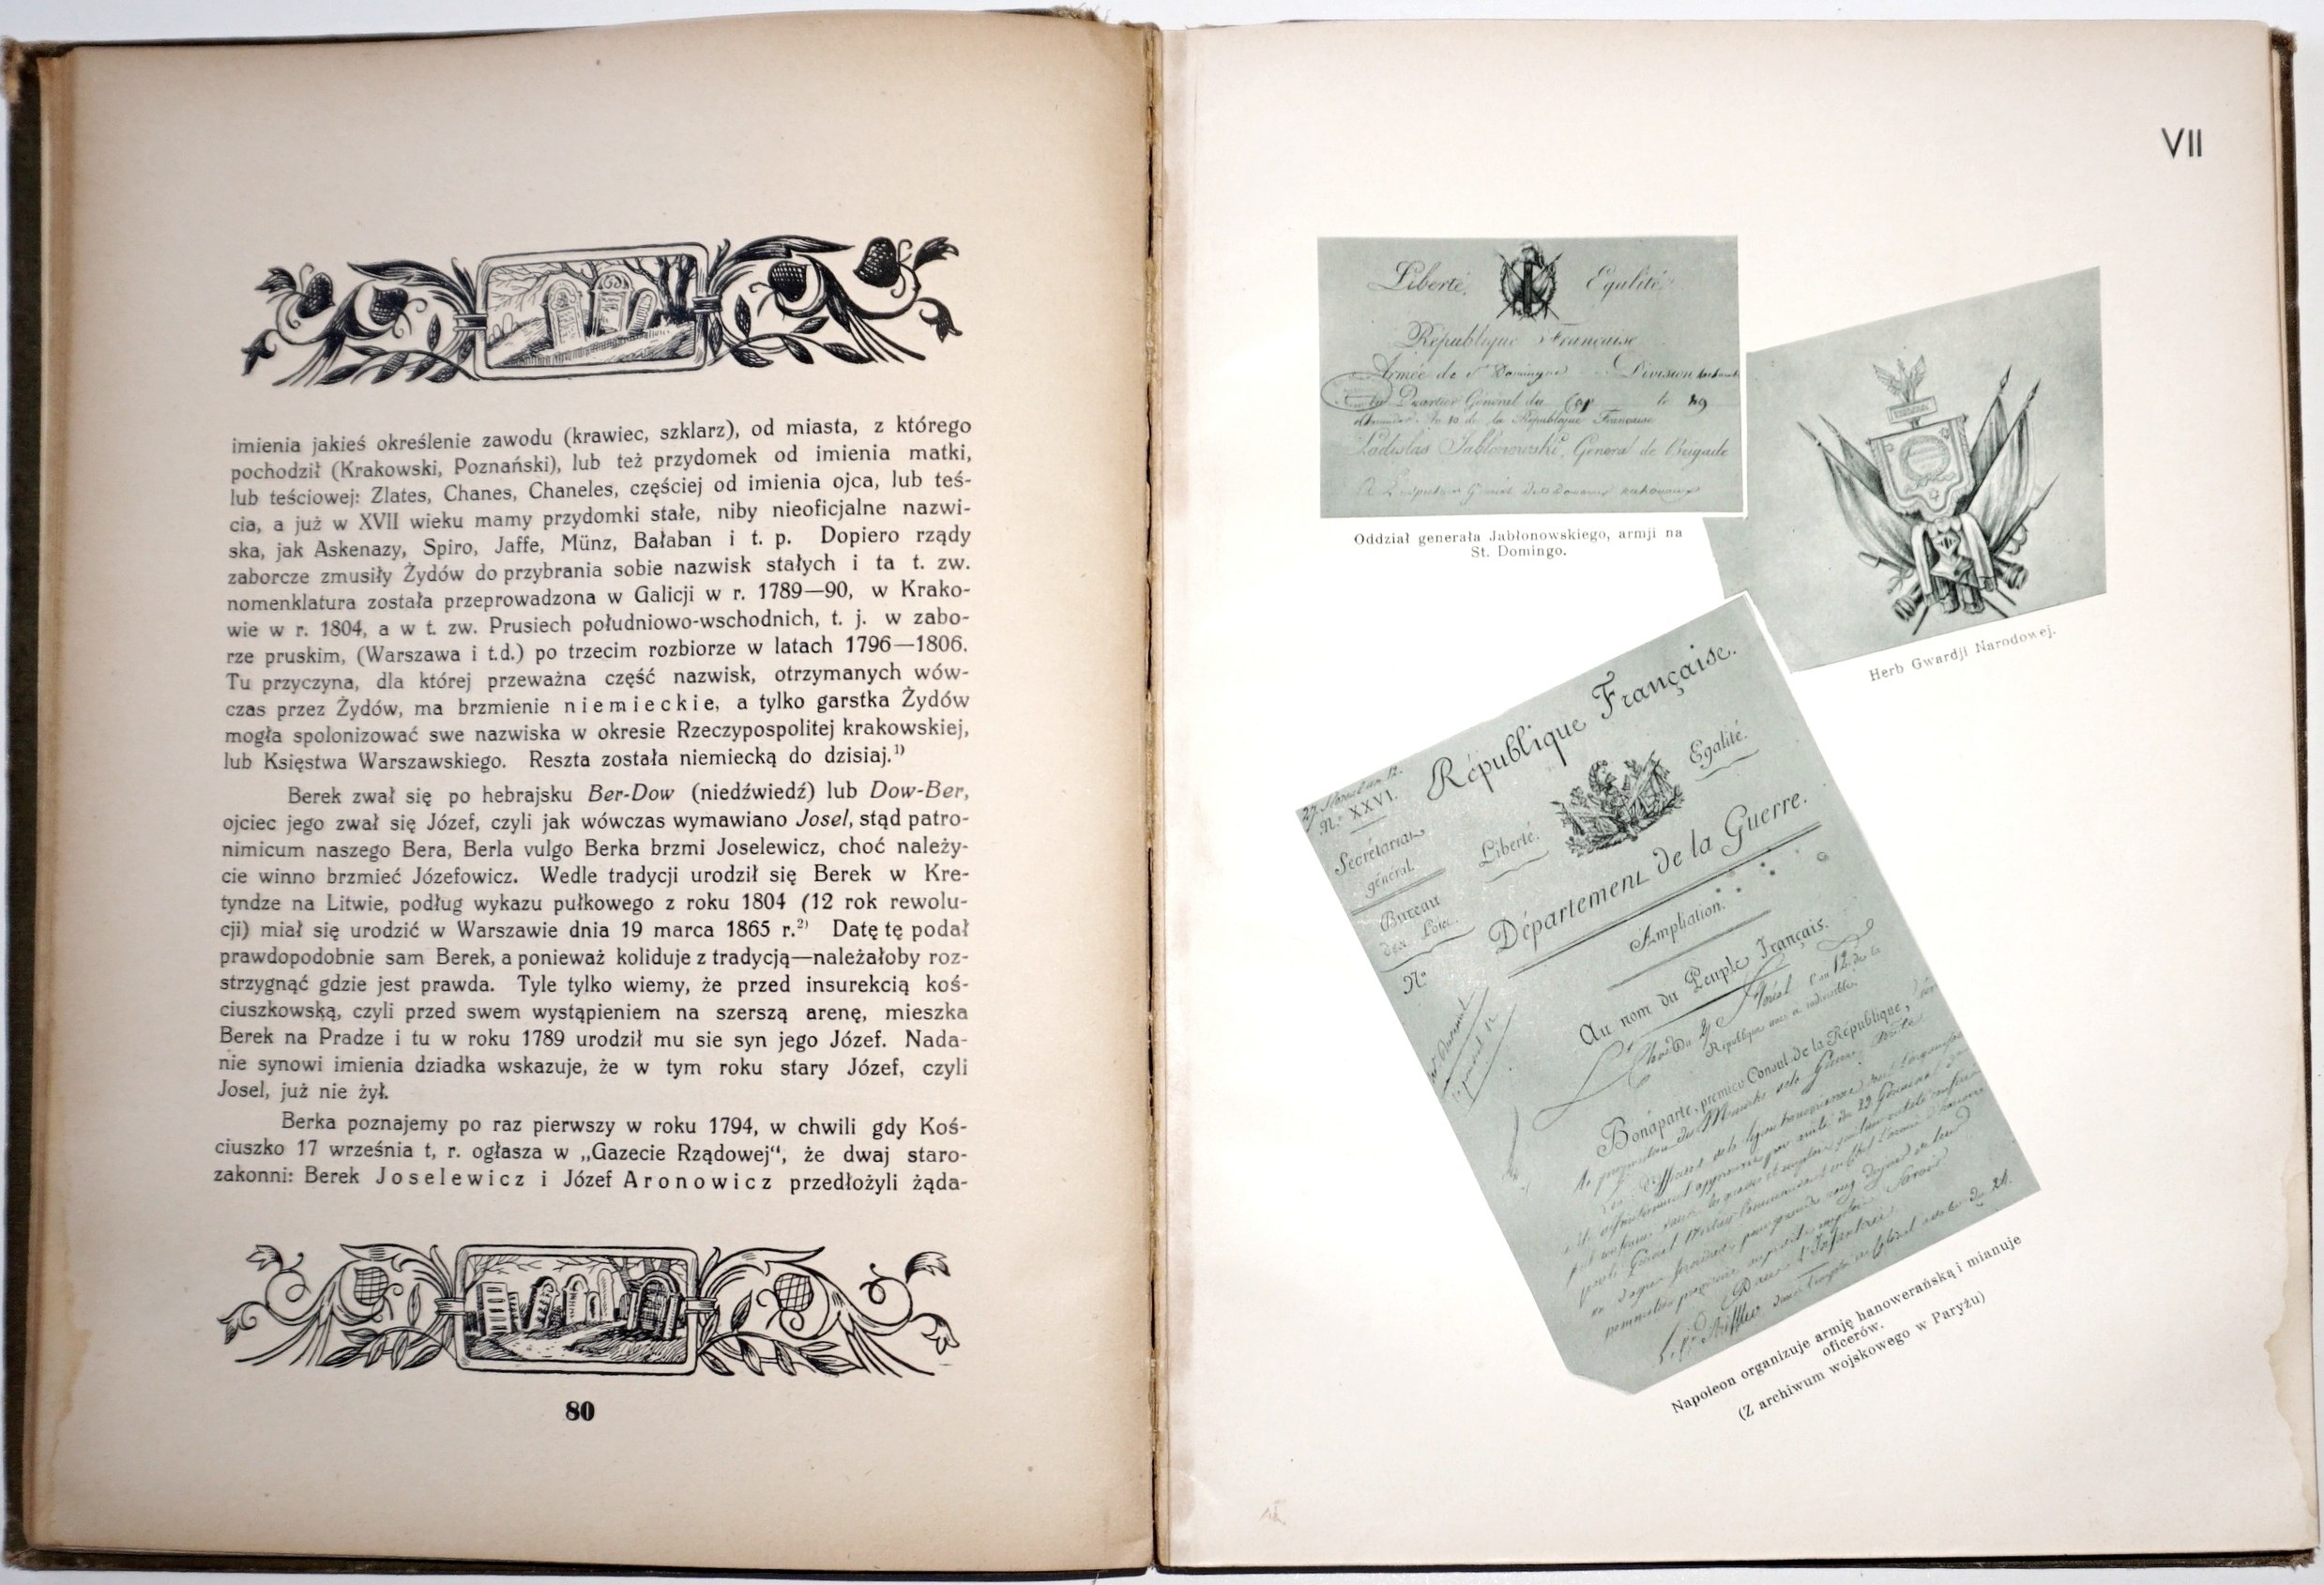 imienia jakieś określenie zawodu (krawiec, szklarz), od miasta, z którego
pochodził (Krakowski, Poznański), lub też przydomek od imienia matki,
lub teściowej: Zlates, Chanes, Chaneles, częściej od imienia ojca, lub teś-
cia, a już w XVII wieku mamy przydomki stałe, niby nieoficjalne nazwi-
ska, jak Askenazy, Spiro, Jaffe, Münz, Bałaban i t. p. Dopiero rządy
zaborcze zmusiły Żydów do przybrania sobie nazwisk stałych i ta t. zw.
nomenklatura została przeprowadzona w Galicji w r. 1789—90, w Krako-
wie w r. 1804, a w t. zw. Prusiech południowo-wschodnich, t. j. w zabo-
rze pruskim, (Warszawa i t.d.) po trzecim rozbiorze w latach 1796—1806.
Tu przyczyna, dla której przeważna część nazwisk, otrzymanych wów-
czas przez Żydów, ma brzmienie niemieckie, a tylko garstka Żydów
mogła spolonizować swe nazwiska w okresie Rzeczypospolitej krakowskiej,
lub Księstwa Warszawskiego. Reszta została niemiecką do dzisiaj.¹⁾
Berek zwał się po hebrajsku Ber-Dow (niedźwiedź) lub Dow-Ber,
ojciec jego zwał się Józef, czyli jak wówczas wymawiano Josel, stąd patro-
nimicum naszego Bera, Berla vulgo Berka brzmi Joselewicz, choć należy-
cie winno brzmieć Józefowicz. Wedle tradycji urodził się Berek w Kre-
tyndze na Litwie, podług wykazu pułkowego z roku 1804 (12 rok rewolu-
cji) miał się urodzić w Warszawie dnia 19 marca 1865 r.²⁾ Datę tę podał
prawdopodobnie sam Berek, a ponieważ koliduje z tradycją—należałoby roz-
strzygnąć gdzie jest prawda. Tyle tylko wiemy, że przed insurekcią koś-
ciuszkowską, czyli przed swem wystąpieniem na szerszą arenę, mieszka
Berek na Pradze i tu w roku 1789 urodził mu sie syn jego Józef. Nada-
nie synowi imienia dziadka wskazuje, że w tym roku stary Józef, czyli
Josel, już nie żył.
Berka poznajemy po raz pierwszy w roku 1794, w chwili gdy Koś-
ciuszko 17 września t, r. ogłasza w „Gazecie Rządowej“, że dwaj staro-
zakonni: Berek Joselewicz i Józef Aronowicz przedłożyli żąda-
80
VII
Liberté, Egalité,
République Française
Armée de St Domingue Division
Quartier Général du Cap le 29
An 10 de la République Française
Ladislas Jabłonowski, Général de Brigade
Oddział generała Jabłonowskiego, armji na
St. Domingo.
Herb Gwardji Narodowej.
N.º XXVI.
République Française.
Secrétariat
général.
Liberté. Egalité.
Bureau
des Lois.
Département de la Guerre.
Nº
Ampliation.
Au nom du Peuple Français.
République une et indivisible.
Bonaparte, premier Consul de la République,
Napoleon organizuje armję hanowerańską i mianuje
oficerów.
(Z archiwum wojskowego w Paryżu)